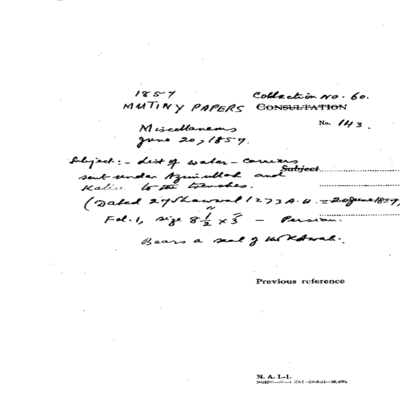 1857 Collection No. 60.
MUTINY PAPERS CONSULTATION
Miscellaneous No. 143.
June 20, 1857.
Subject:- List of water-carriers Subject
sent under Azimullah and
to the trenches.
(Dated 27 Shawwal 1273 A.H. = 20 June 1857)
Fol. 1, size 8 1/2" x 3" - Persian.
Bears a seal of
Previous reference
N. A. I.-1.